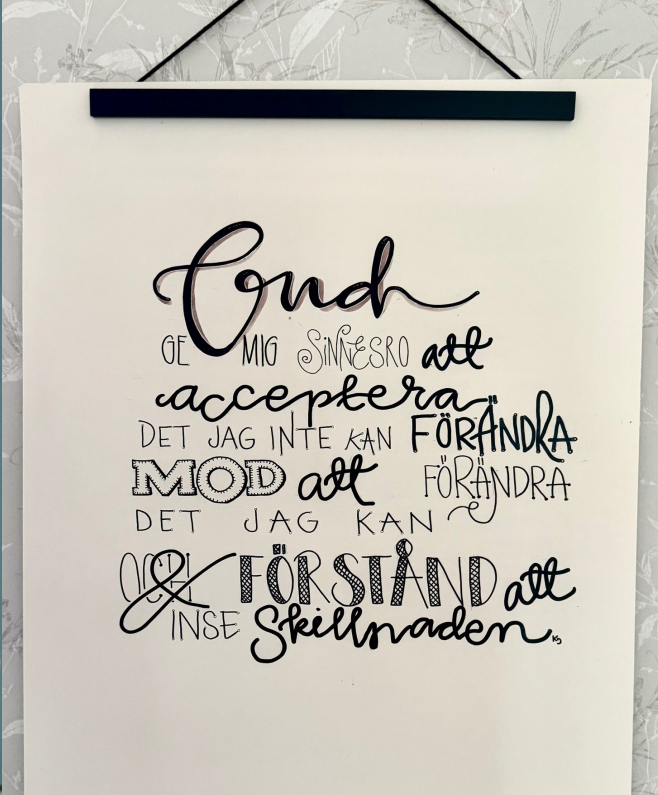 Gud
GE MIG SiNNESRO att
acceptera
DET JAG INTE KAN FÖRÄNDRA
MOD att FÖRÄNDRA
DET JAG KAN
OCH & FÖRSTÅND att
INSE Skillnaden.